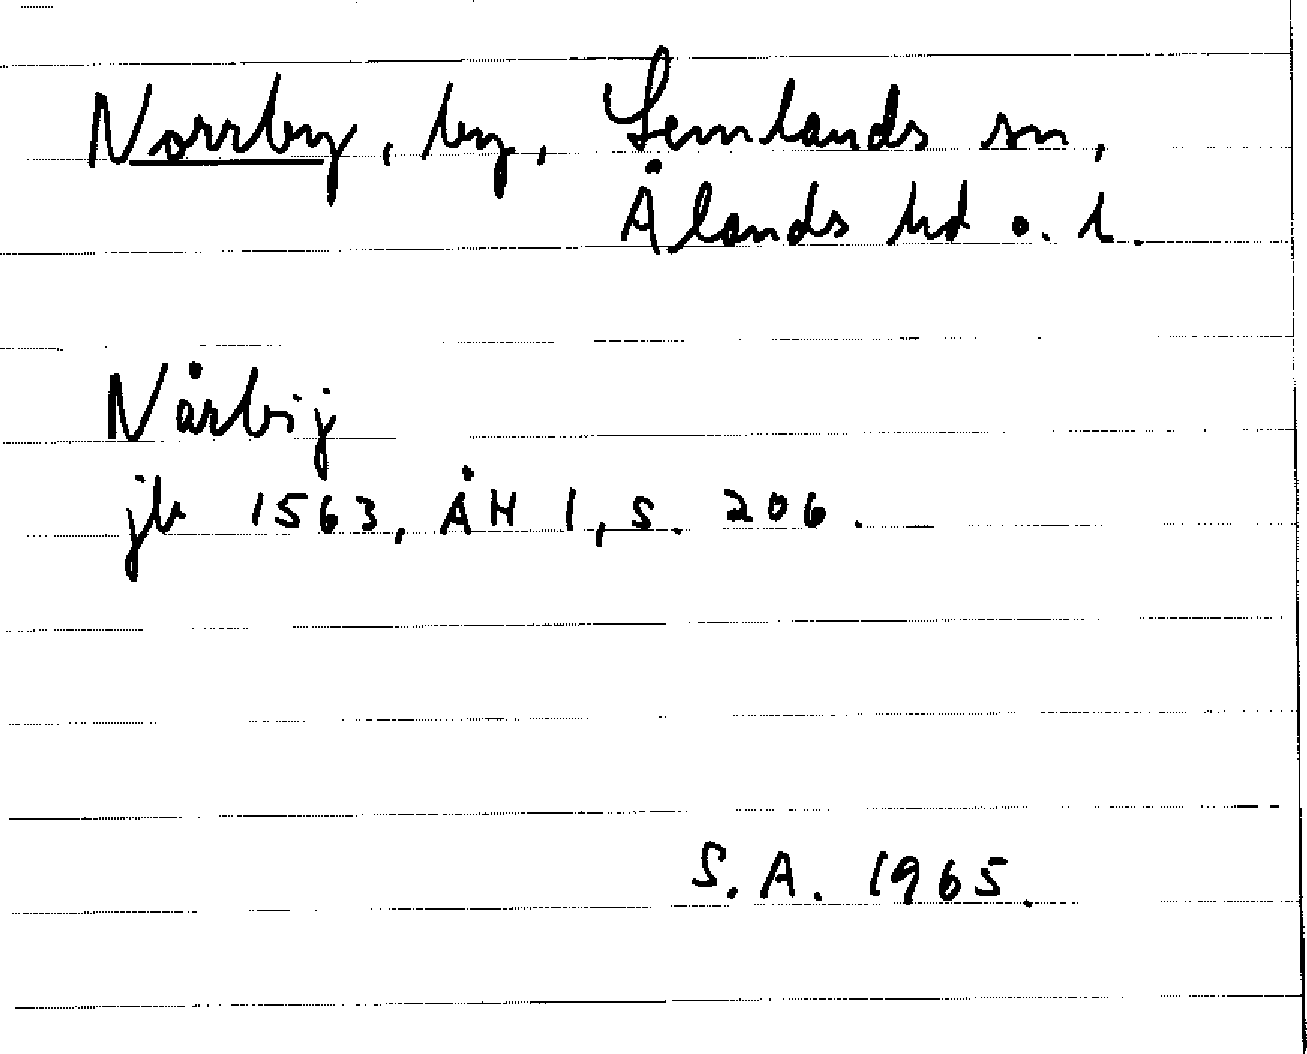 Norrby, by, Lemlands sn,
Ålands hd o. l.
Nårbij
jb 1563, ÅH 1, s. 206.
S.A. 1965.